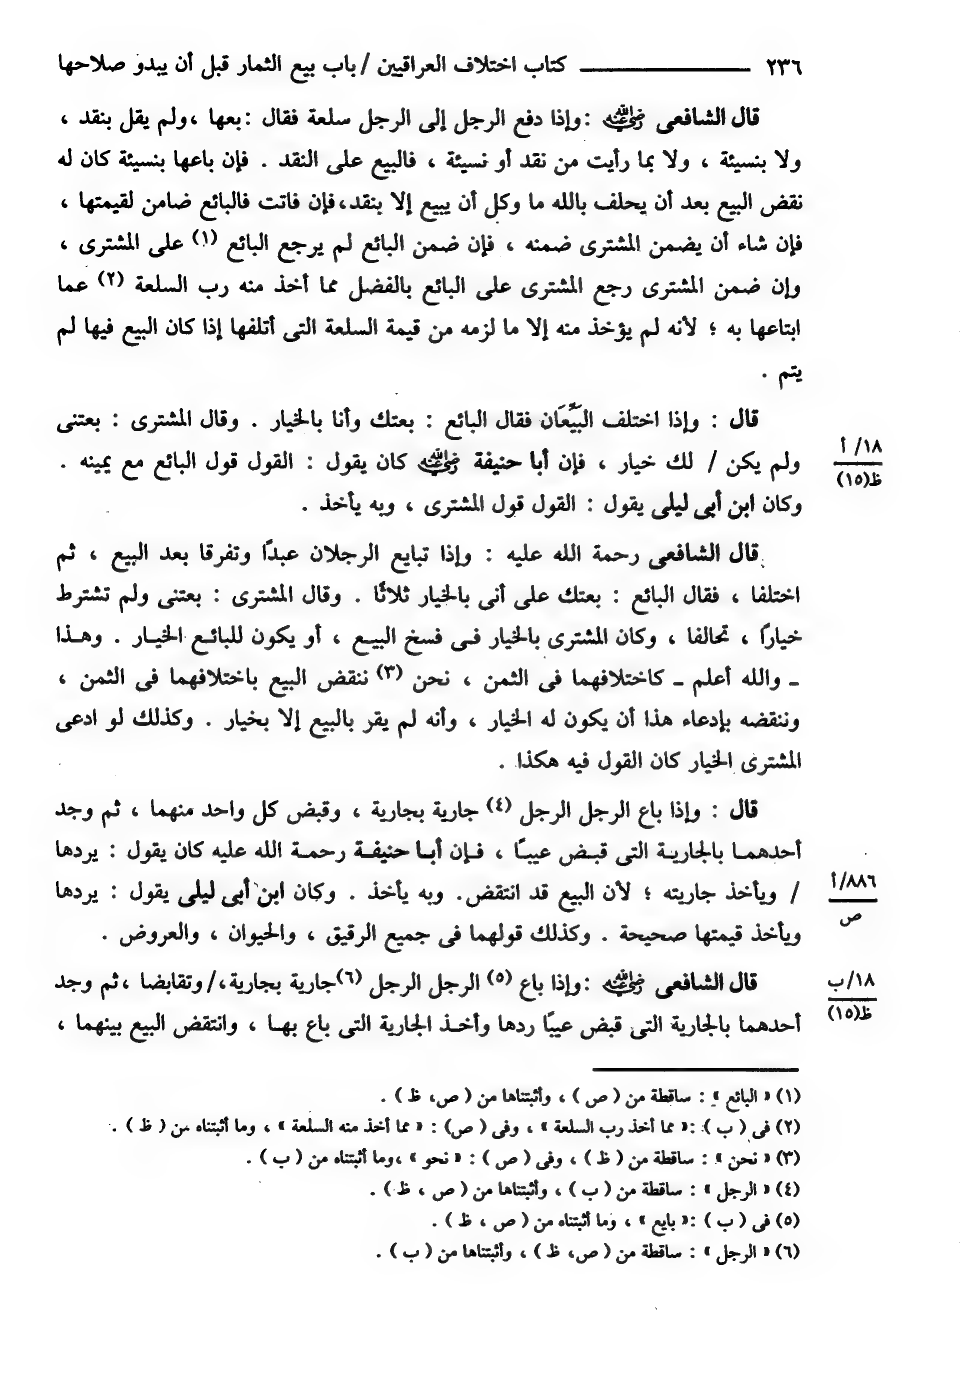 ٢٣٦ كتاب اختلاف العراقيين / باب بيع الثمار قبل أن يبدو صلاحها
قال الشافعى رضي الله عنه : وإذا دفع الرجل إلى الرجل سلعة فقال : بعها ، ولم يقل بنقد ،
ولا بنسيئة ، ولا بما رأيت من نقد أو نسيئة ، فالبيع على النقد . فإن باعها بنسيئة كان له
نقض البيع بعد أن يحلف بالله ما وكل أن يبيع إلا بنقد ، فإن فاتت فالبائع ضامن لقيمتها ،
فإن شاء أن يضمن المشترى ضمنه ، فإن ضمن البائع لم يرجع البائع (١) على المشترى ،
وإن ضمن المشترى رجع المشترى على البائع بالفضل مما أخذ منه رب السلعة (٢) عما
ابتاعها به ؛ لأنه لم يؤخذ منه إلا ما لزمه من قيمة السلعة التى أتلفها إذا كان البيع فيها لم
يتم .
قال : وإذا اختلف البَيِّعَان فقال البائع : بعتك وأنا بالخيار . وقال المشترى : بعتنى
ولم يكن / لك خيار ، فإن أبا حنيفة رضي الله عنه كان يقول : القول قول البائع مع يمينه .
١٨/ أ
ظ(١٥)
وكان ابن أبى ليلى يقول : القول قول المشترى ، وبه يأخذ .
قال الشافعى رحمة الله عليه : وإذا تبايع الرجلان عبدًا وتفرقا بعد البيع ، ثم
اختلفا ، فقال البائع : بعتك على أنى بالخيار ثلاثًا . وقال المشترى : بعتنى ولم تشترط
خيارًا ، تحالفا ، وكان المشترى بالخيار فى فسخ البيع ، أو يكون للبائع الخيار . وهذا
ـ والله أعلم ـ كاختلافهما فى الثمن ، نحن (٣) ننقض البيع باختلافهما فى الثمن ،
وننقضه بإدعاء هذا أن يكون له الخيار ، وأنه لم يقر بالبيع إلا بخيار . وكذلك لو ادعى
المشترى الخيار كان القول فيه هكذا .
قال : وإذا باع الرجل الرجل (٤) جارية بجارية ، وقبض كل واحد منهما ، ثم وجد
أحدهما بالجارية التى قبض عيبًا ، فإن أبا حنيفة رحمة الله عليه كان يقول : يردها
/ ويأخذ جاريته ؛ لأن البيع قد انتقض. وبه يأخذ . وكان ابن أبى ليلى يقول : يردها
٨٨٦/أ
ص
ويأخذ قيمتها صحيحة . وكذلك قولهما فى جميع الرقيق ، والحيوان ، والعروض .
قال الشافعى رضي الله عنه : وإذا باع (٥) الرجل الرجل (٦) جارية بجارية ، / وتقابضا ، ثم وجد
١٨/ب
ظ(١٥)
أحدهما بالجارية التى قبض عيبًا ردها وأخذ الجارية التى باع بها ، وانتقض البيع بينهما ،
(١) « البائع » : ساقطة من ( ص ) ، وأثبتناها من ( ص، ظ ) .
(٢) فى ( ب ) : « مما أخذ رب السلعة » ، وفى ( ص) : « مما أخذ منه السلعة » ، وما أثبتناه من ( ظ ) .
(٣) « نحن » : ساقطة من ( ظ ) ، وفى ( ص ) : « نحو » ،وما أثبتناه من ( ب ) .
(٤) « الرجل » : ساقطة من ( ب ) ، وأثبتناها من ( ص ، ظ ) .
(٥) فى ( ب ) : « بايع » ، وما أثبتناه من ( ص ، ظ ) .
(٦) « الرجل » : ساقطة من ( ص، ظ ) ، وأثبتناها من ( ب ) .